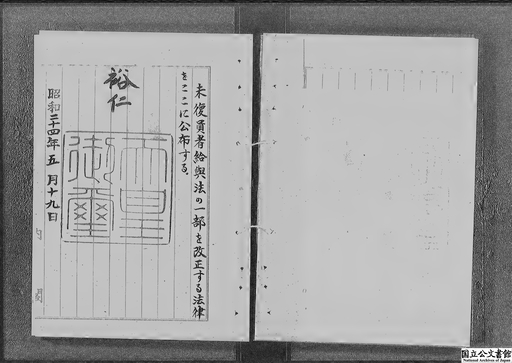 未復員者給與法の一部を改正する法律
をここに公布する。
裕仁
天皇
御璽
昭和二十四年五月十九日
内閣
国立公文書館
National Archives of Japan